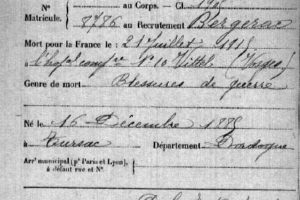 au Corps. — Cl.
Matricule.
8786 au Recrutement Bergerac
Mort pour la France le 21 Juillet 1915
à Hop l comp re N° 10 Vittel (Vosges)
Genre de mort Blessures de guerre
Né le 16 Décembre 
à Tursac Département Dordogne
Arr t municipal (p r Paris et Lyon),
à défaut rue et N°